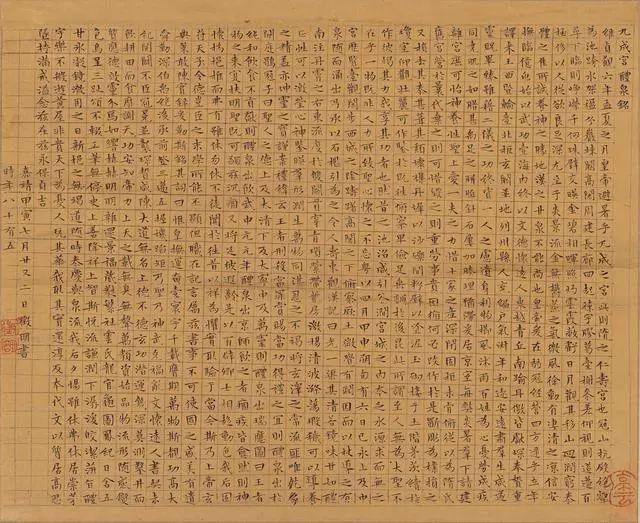 九成宮醴泉銘
維貞觀六年孟夏之月皇帝避暑乎九成之宮此則隋之仁壽宮也冠山抗殿絕壑
為池跨水架楹分巖竦闕高閣周建長廊四起棟宇膠葛臺榭參差仰視則迢遰百
尋下臨則崢嶸千仞珠璧交暎金碧相暉照灼雲霞蔽虧日月觀其移山迴澗窮泰
極侈以人從欲良足深尤至於炎景流金無鬱蒸之氣微風徐動有淒清之涼信安
體之佳所誠養神之勝地漢之甘泉不能尚也皇帝爰在弱冠經營四方逮乎立年
撫臨億兆始以武功壹海內終以文德懷遠人東越青丘南踰丹徼皆獻琛奉贄重
譯來王西暨輪臺北拒玄闕並地列州縣人充編戶氣淑年和邇安遠肅群生咸遂
靈貺畢臻雖藉二儀之功終資一人之慮遺身利物櫛風沐雨百姓為心憂勞成疾
同堯肌之如腊甚禹足之胼胝針石屢加腠理猶滯爰居京室每弊炎暑群下請建
離宮庶可怡神養性聖上愛一夫之力惜十家之產深閉固拒未肯俯從以為隋氏
舊宮營於曩代棄之則可惜毀之則重勞事貴因循何必改作於是斲彫為樸損之
又損去其泰甚葺其頹壞雜丹墀以沙礫間粉壁以塗泥玉砌接於土階茅茨續於
瓊室仰觀壯麗可作鑒於既往俯察卑儉足垂訓於後昆此所謂至人無為大聖不
作彼竭其力我享其功者也然昔之池沼咸引谷澗宮城之內本乏水源求而無之
在乎一物既非人力所致聖心懷之不忘粵以四月甲申朔旬有六日己亥上及中
宮歷覽臺觀閑步西城之陰躊躇高閣之下俯察厥土微覺有潤因而以杖導之有
泉隨而涌出乃承以石檻引為一渠其清若鏡味甘如醴
南注丹霄之右東流度於雙闕貫穿青瑣縈帶紫房激揚清波滌蕩瑕穢可以導養
正性可以澂瑩心神鑒映群形潤生萬物同湛恩之不竭將玄澤之常流匪唯乾象
之精蓋亦坤靈之寶謹案禮緯云王者刑殺當罪賞錫當功得禮之宜則醴泉出於
闕庭鶡冠子曰聖人之德上及太清下及太寧中及萬靈則醴泉出瑞應圖曰王者
純和飲食不貢獻則醴泉出飲之令人壽東觀漢記曰光武中元元年醴泉出京師飲之者痼疾皆愈然則神
物之來寔扶明聖既可蠲茲沉痼又將延彼遐齡是以百辟卿士相趨動色我后固
懷撝挹推而弗有雖休勿休不徒聞於往昔以祥為懼實取驗於當今斯乃上帝玄
符天子令德豈臣之末學所能丕顯但職在記言屬茲書事不可使國之盛美有遺
典策敢陳實錄爰勒斯銘其詞曰惟皇撫運奄壹寰宇千載膺期萬物斯睹功高大
舜勤深伯禹絕後光前登三邁五握機蹈矩乃聖乃神武克禍亂文懷遠人書契未
紀開闢不臣冠冕並襲琛贄咸陳大道無名上德不德玄功潛運幾深莫測鑿井而
飲耕田而食靡謝天功安知帝力上天之載無臭無聲萬類資始品物流形隨感變
質應德效靈介焉如響赫赫明明雜遝景福葳蕤繁祉雲氏龍官龜圖鳳紀日含五
色烏呈三趾頌不輟工筆無停史上善降祥上智斯悅流謙潤下潺湲皎潔萍旨醴
甘冰凝鏡澈用之日新挹之無竭道隨時泰慶與泉流我后夕惕雖休弗休居崇茅
宇樂不般遊黃屋非貴天下為憂人玩其華我取其實還淳反本代文以質居高思
墜持滿戒溢念茲在茲永保貞吉
嘉靖甲寅七月廿又二日徵明書
時年八十有五